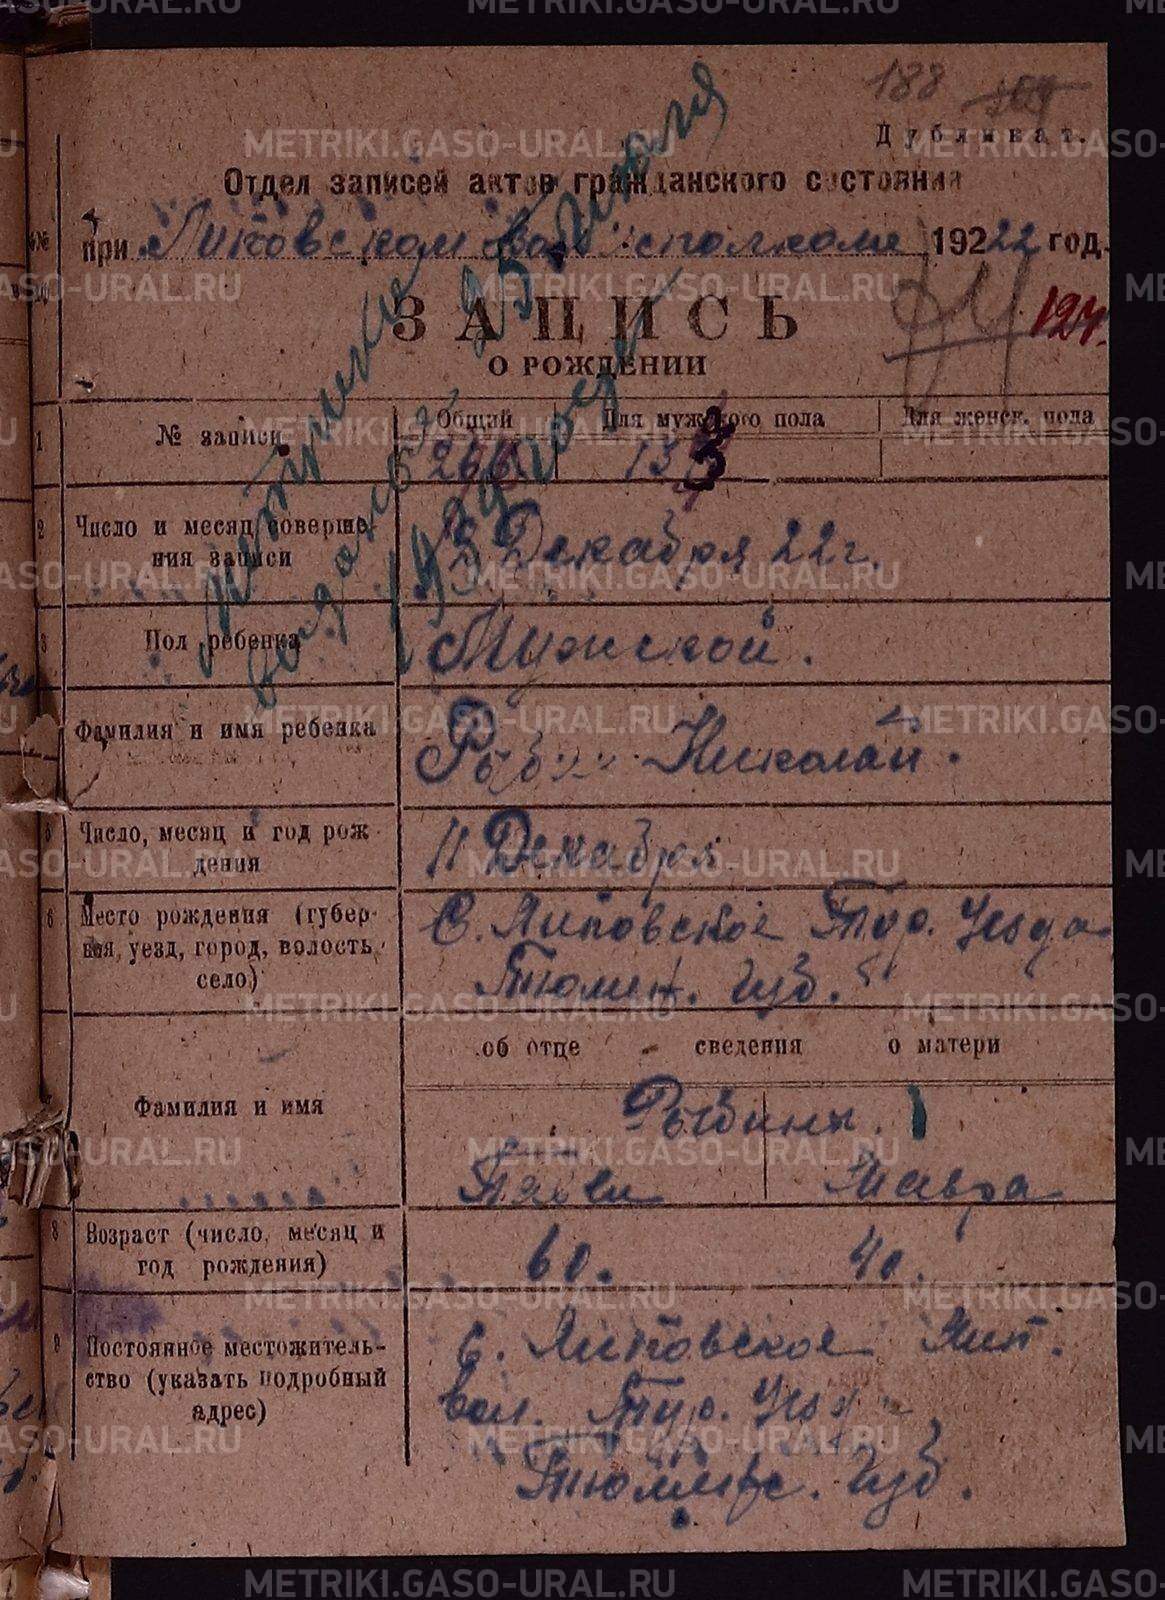 188
Дубликат.
Отдел записей актов гражданского состояния
при Липовском Волисполкоме 1922 22 год.
ЗАПИСЬ
О РОЖДЕНИИ
124.
метрики 25 июля
1939 года
1 № записи Общий Для мужского пола Для женск. пола
266 133
2 Число и месяц соверше-
ния записи
Декабря 22 г.
3 Пол ребенка Мужской.
Фамилия и имя ребенка Рыбин Николай.
5 Число, месяц и год рож-
дения
11 Декабря
6 Место рождения (губер-
ния, уезд, город, волость,
село)
С. Липовское Тур. Уезда
Тюмен. губ.
об отце сведения о матери
Фамилия и имя
Рыбины.
Мавра
8 Возраст (число, месяц и
год рождения)
60. 40.
9 Постоянное местожитель-
ство (указать подробный
адрес)
С. Липовское Лип.
вол. Тур. Уезда
Тюменск. губ.
METRIKI.GASO-URAL.RU